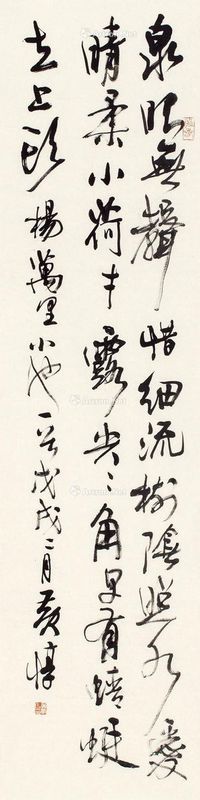 泉眼無聲惜細流樹陰照水愛
晴柔小荷才露尖〻角早有蜻蜓
立上頭 楊萬里小池一首戊戌二月黃惇